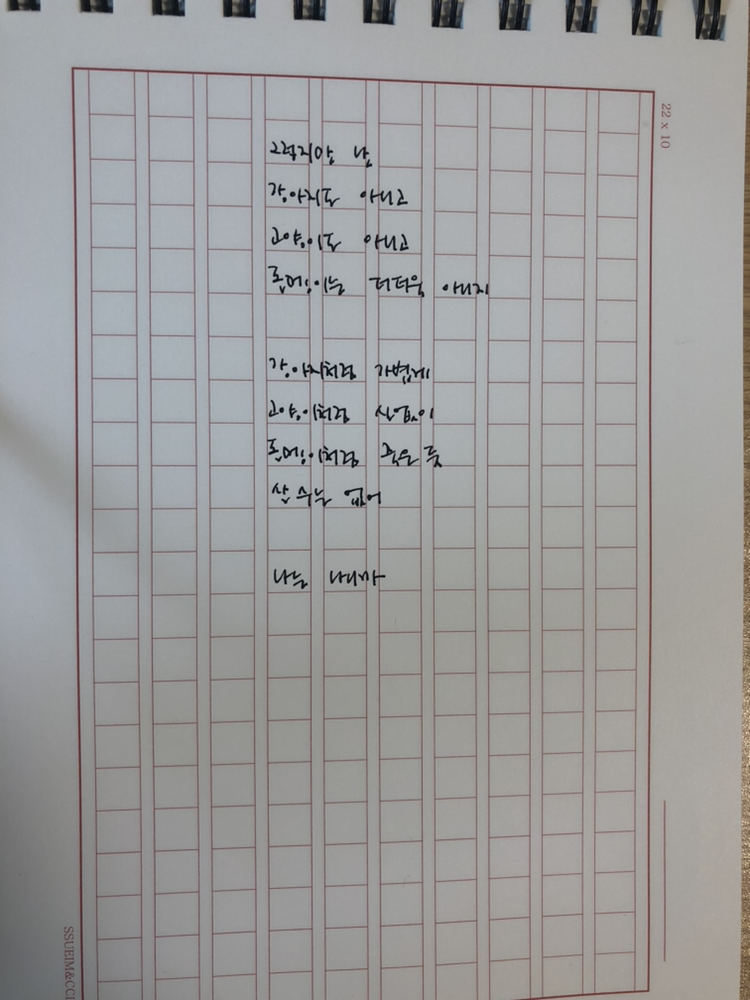 그렇지만 난
강아지도 아니고
고양이도 아니고
돌멩이는 더더욱 아니지
강아지처럼 가볍게
고양이처럼 상없이
돌멩이처럼 죽은 듯
살 수는 없어
나는 나니까
22 x 10